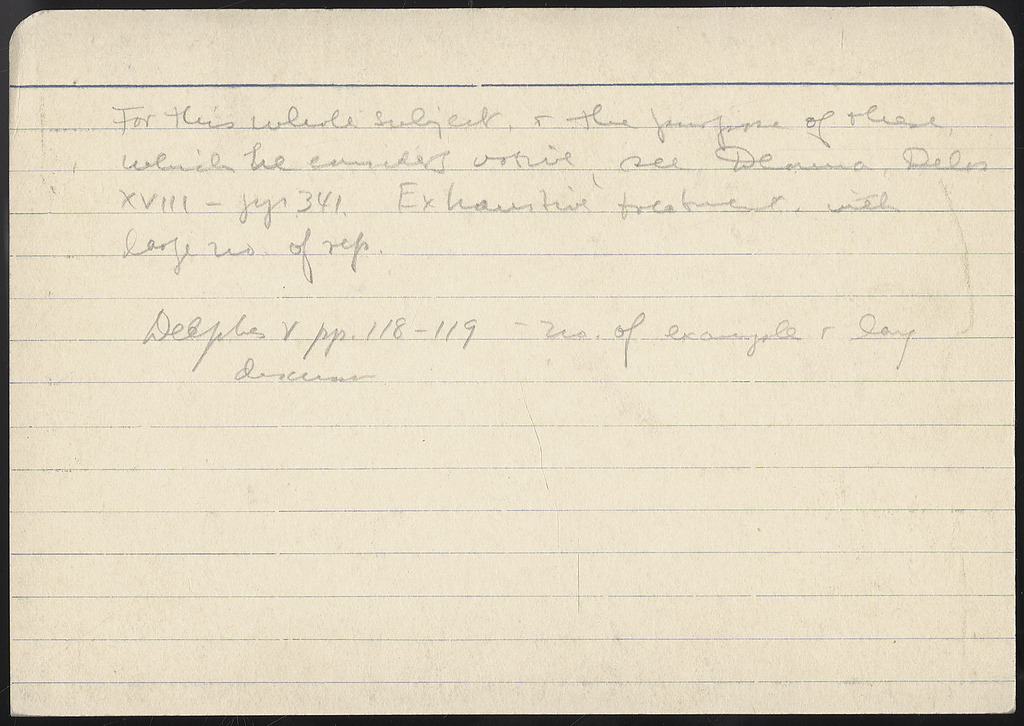 For this whole subject, + the purpose of these,
which he considers votive, see Deonna, Delos
XVIII – pp 341. Exhaustive treatment, with
large no. of reps.
Delphes V pp. 118-119 – no. of example + long
discuss